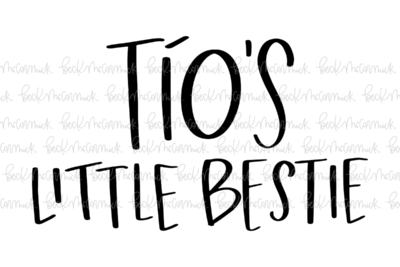 TÍO'S
LITTLE BESTIE